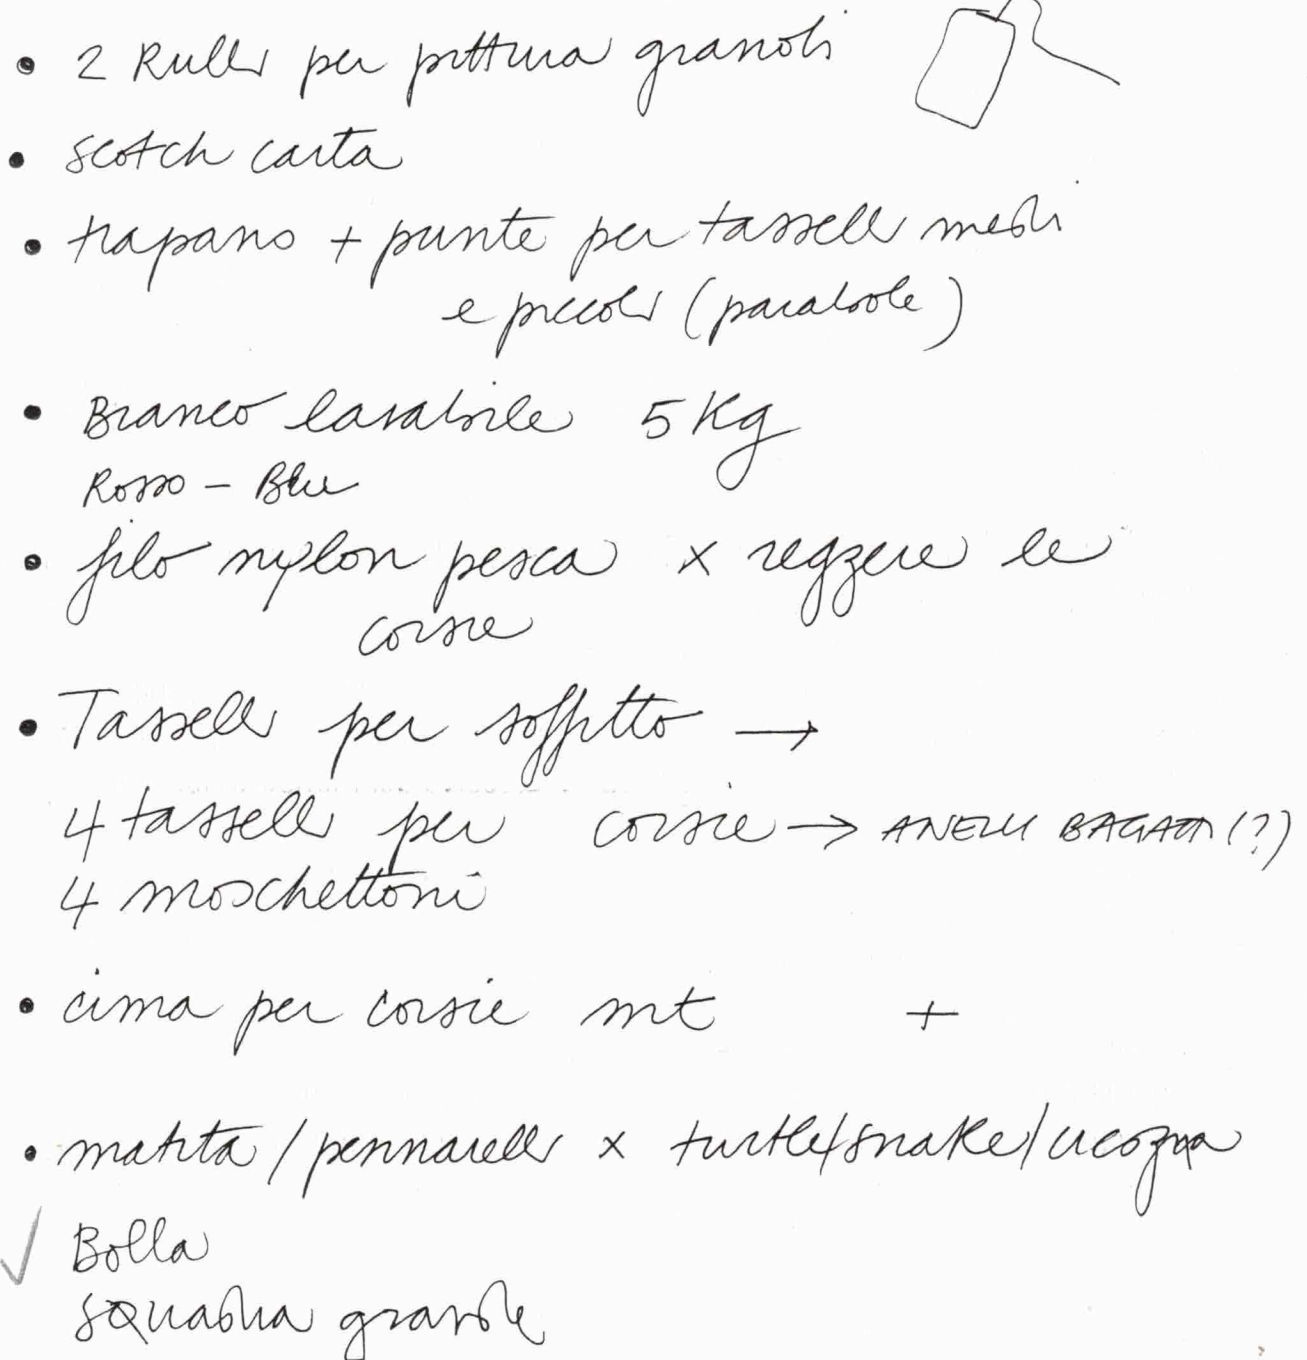 • 2 Rulli per pittura grandi
• scotch carta
• trapano + punte per tasselli medi
e piccoli (parabole)
• Bianco lavabile 5 Kg
Rosso - Blu
• filo nylon pesca x reggere le
corsie
• Tasselli per soffitto →
4 tasselli per corsie → ANELLI (?)
4 moschettoni
• cima per corsie mt +
• matita / pennarelli x turtle/snake/cicogna
✓ Bolla
squadra grande